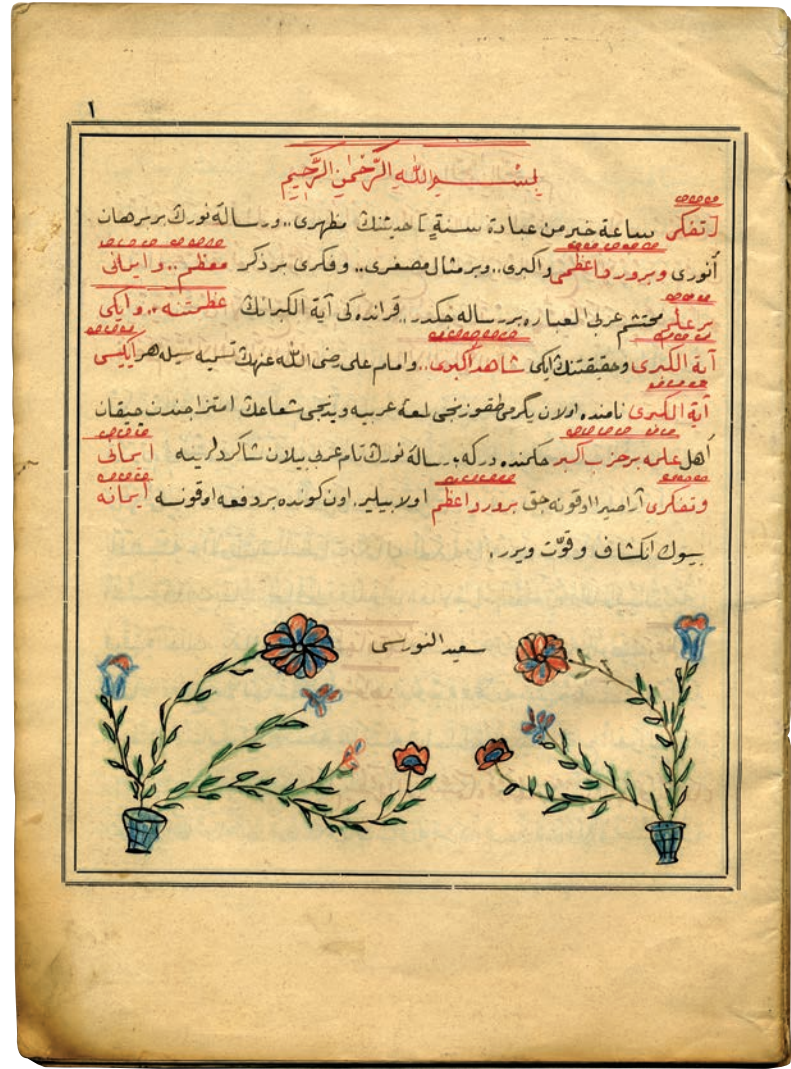 ١
بِسْــــمِ اللّٰهِ الرَّحْمٰنِ الرَّحِيمِ
[تفكر ساعة خير من عبادة سنةٍ] حديثنك مظهرى.. ورسالۀ نورك بر برهان
أنورى وبر ورد اعظمى واكبرى.. وبر مثال مصغرى.. وفكرى بر ذكر معظم.. وايمانى
بر علم محتشم عربى العباره بر رساله خكدر.. قرآنده كى آية الكبرانك عظمتنه.. وايكى
آية الكبرى وحقيقتنك ايكى شاهد اكبرى.. وامام على رضى اللّٰه عنهك تسميه سيله هر ايكيسى
آية الكبرى نامنده اولان يگرمى طقوزنجى لمعۀ عربيه ويدنجى شعاعك امتزاجندن چيقان
أهل علمه بر حزب اكبر حكمنده در كه؛ رسالۀ نورك تام عربى بيلان شاكردلرينه ايمانى
وتفكرى آراصيرا اوقونه جق بر ورد اعظم اولابيلير. اون كونده بر دفعه اوقونسه ايمانه
بيوك انكشاف و قوّت ويرر.
سعيد النورسى